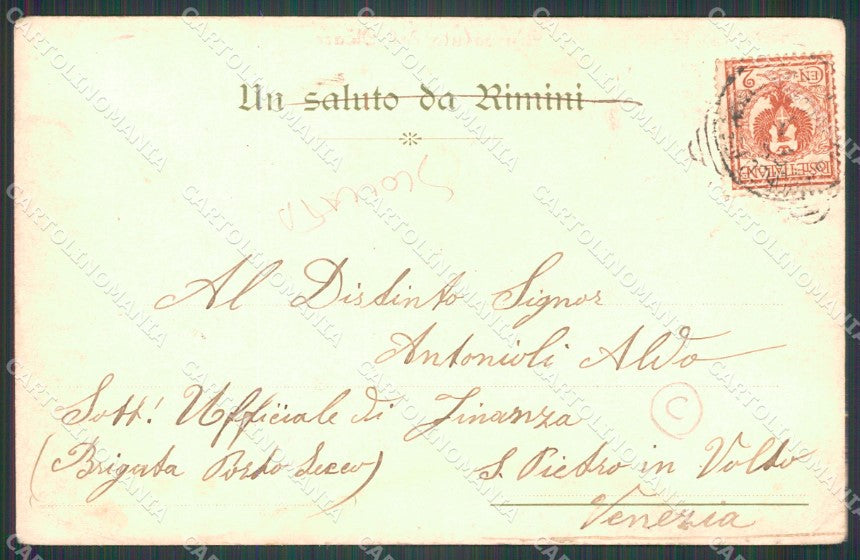 Un saluto da Rimini
2
EN
POSTE ITALIANE
SCONTATA
Al Distinto Signor
Antonioli Aldo
Sott! Ufficiale di Finanza
C
(Brigata Porto Secco) S. Pietro in Volto
Venezia
CARTOLINOMANIA